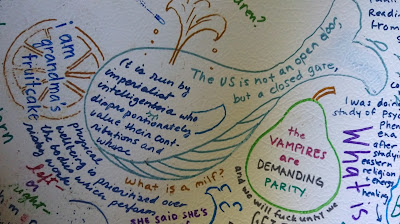 ldren?
i am
grandma's
fruitcake
It is run by
imperialist
intelligentsia who
disproportionately
value their con-
tributions and
whose
physical
wellbeing is prioritized over
the bodies
when person
The US is not an open door,
but a closed gate,
the
VAMPIRES
are
DEMANDING
PARITY
and we will fuck until we
what is a milf?
SHE SAID SHE'S
left-
or
right-
Readi
from
I was doin
study of Psyc
Phen
after
studying
eastern
religion
+ energy
healing
What is